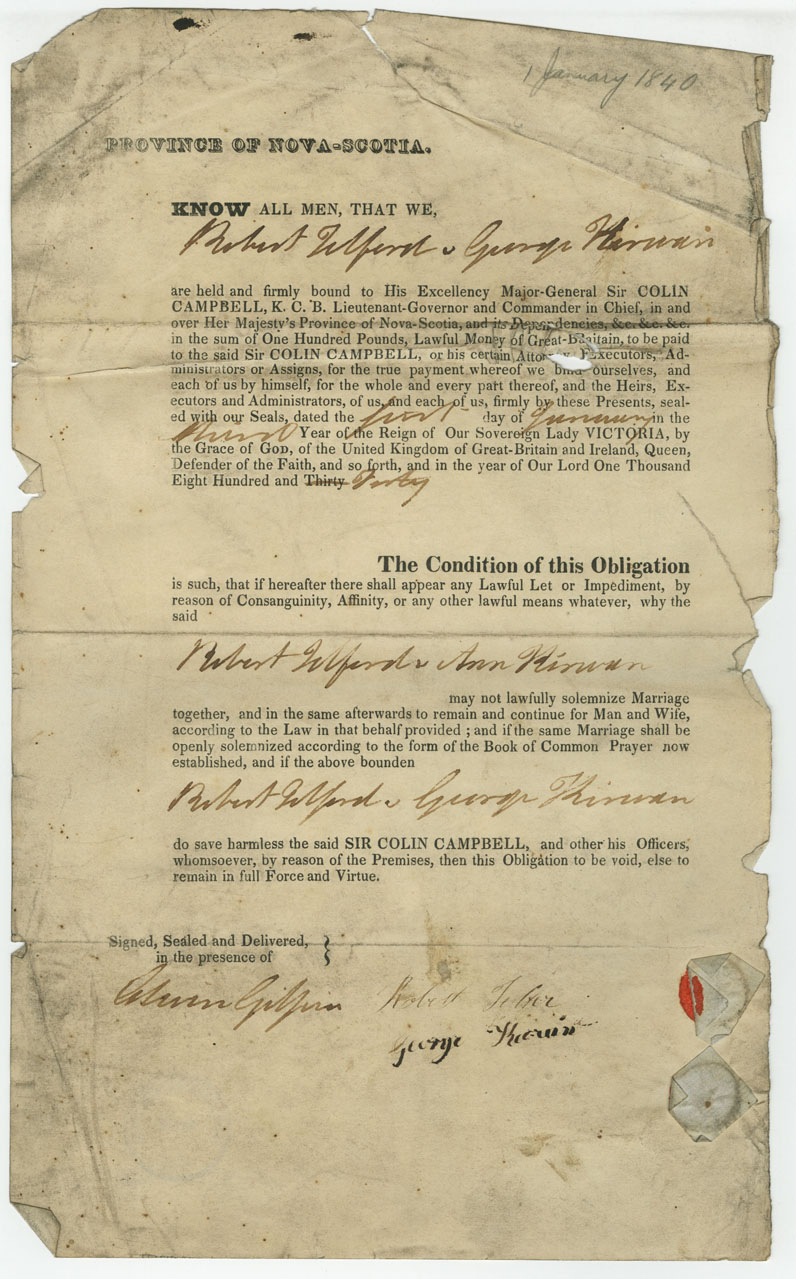 1 January 1840
PROVINCE OF NOVA-SCOTIA.
KNOW ALL MEN, THAT WE,
Robert Telford & George Kirwan
are held and firmly bound to His Excellency Major-General Sir COLIN
CAMPBELL, K. C. B. Lieutenant-Governor and Commander in Chief, in and
over Her Majesty's Province of Nova-Scotia, and its Dependencies, &c. &c. &c.
in the sum of One Hundred Pounds, Lawful Money of Great-Britain, to be paid
to the said Sir COLIN CAMPBELL, or his certain Executors, Ad-
ministrators or Assigns, for the true payment whereof we bind ourselves, and
each of us by himself, for the whole and every part thereof, and the Heirs, Ex-
ecutors and Administrators, of us, and each of us, firmly by these Presents, seal-
ed with our Seals, dated the first day of January in the
third Year of the Reign of Our Sovereign Lady VICTORIA, by
the Grace of GOD, of the United Kingdom of Great-Britain and Ireland, Queen,
Defender of the Faith, and so forth, and in the year of Our Lord One Thousand
Eight Hundred and Thirty Forty
The Condition of this Obligation
is such, that if hereafter there shall appear any Lawful Let or Impediment, by
reason of Consanguinity, Affinity, or any other lawful means whatever, why the
said
Robert Telford & Ann Kirwan
may not lawfully solemnize Marriage
together, and in the same afterwards to remain and continue for Man and Wife,
according to the Law in that behalf provided ; and if the same Marriage shall be
openly solemnized according to the form of the Book of Common Prayer now
established, and if the above bounden
Robert Telford & George Kirwan
do save harmless the said SIR COLIN CAMPBELL, and other his Officers,
whomsoever, by reason of the Premises, then this Obligation to be void, else to
remain in full Force and Virtue.
Signed, Sealed and Delivered,
in the presence of
Edwin Gilpin Robert
George